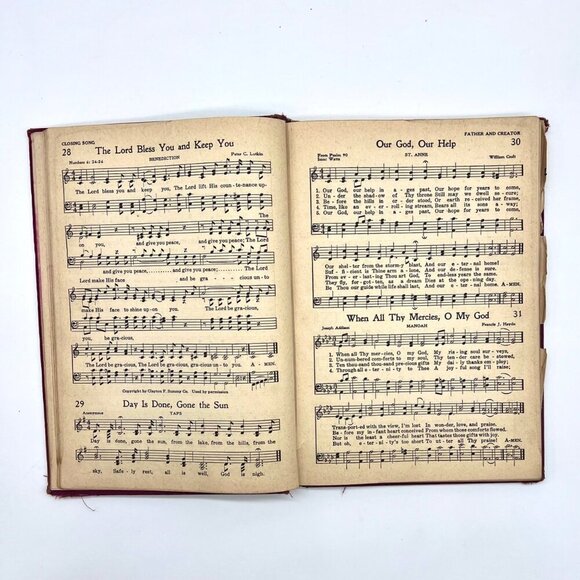 CLOSING SONG
28 The Lord Bless You and Keep You
Numbers 6: 24-26 BENEDICTION Peter C. Lutkin
The Lord bless you and keep you, The Lord lift His coun - te-nance up-
The
on you, and give you peace, and give you peace; The Lord
and give you peace, and give you peace; The Lord
Lord make His face and be gra - cious
make His face to shine up-on you. The Lord be gracious,
you, be gracious,
The Lord be gracious, The Lord be gracious, gracious un-to you. A- MEN.
Copyright by Clayton F. Summy Co. Used by permission
29 Day Is Done, Gone the Sun
Anonymous TAPS
Day is done, gone the sun, from the lake, from the hills, from the
sky, Safe-ly rest, all is well, God is nigh.
FATHER AND CREATOR
Our God, Our Help 30
From Psalm 90
Isaac Watts ST. ANNE William Croft
1. Our God, our help in a - ges past, Our hope for years to come,
2. Un - der the shadow of Thy throne Still may we dwell se - cure;
3. Be - fore the hills in or - der stood, Or earth re - ceived her frame,
4. Time, like an ev - er - roll - ing stream, Bears all its sons a - way;
5. Our God, our help in a - ges past, Our hope for years to come,
Our shel - ter from the storm-y blast, And our e - ter - nal home!
Suf - fi - cient is Thine arm a - lone, And our de - fense is sure.
From ev - er-last-ing Thou art God, To end-less years the same.
They fly, for - got - ten, as a dream Dies at the ope-ning day.
Be Thou our guide while life shall last, And our e - ter - nal home! A-MEN.
When All Thy Mercies, O My God 31
Joseph Addison MANOAH Francis J. Haydn
1. When all Thy mer-cies, O my God, My ris-ing soul sur-veys,
2. Un-num-bered com-forts to my soul, Thy ten-der care be-stowed,
3. Ten thou-sand thou-sand pre-cious gifts My dai - ly thanks em-ploy;
4. Through all e - ter - ni - ty to Thee A joy-ful song I'll raise;
Trans-port-ed with the view, I'm lost In won-der, love, and praise.
Be-fore my in-fant heart conceived From whom those comforts flowed.
Nor is the least a cheer-ful heart That tastes those gifts with joy.
But oh, e - ter - ni - ty's too short To ut - ter all Thy praise! A-MEN.